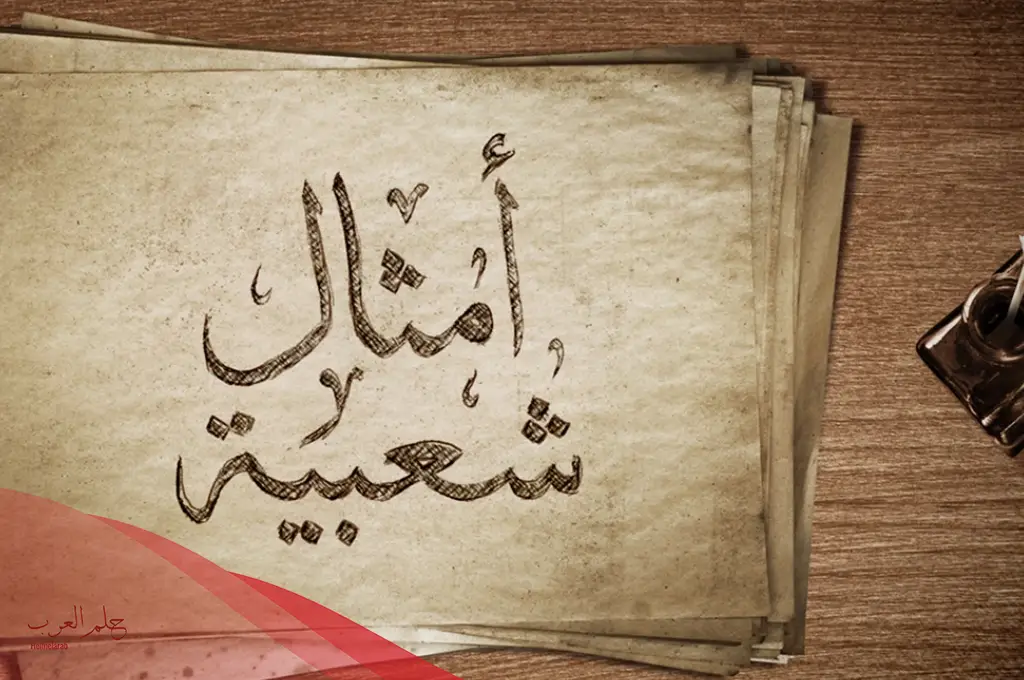 أمثال
شعبية
حلم العرب